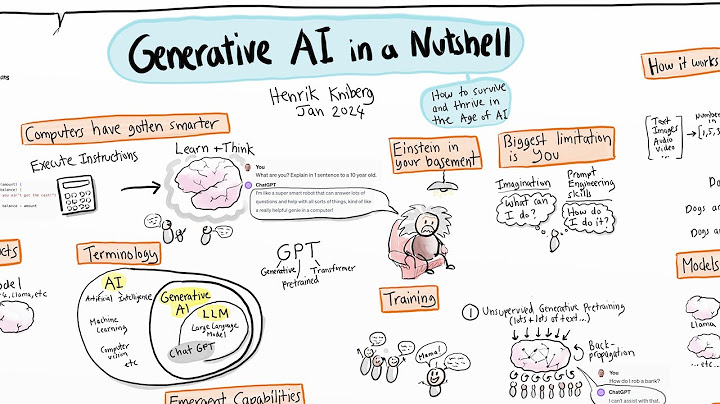 Generative AI in a Nutshell
Henrik Kniberg
Jan 2024
How to survive
and thrive in
the Age of AI
Computers have gotten smarter
Execute Instructions
balance - amount
Learn + Think
You
What are you? Explain in 1 sentence to a 10 year old.
ChatGPT
I'm like a super smart robot that can answer lots of
questions and help with all sorts of things, kind of like
a really helpful genie in a computer!
Einstein in
your basement
Biggest limitation
is you
Imagination
What can
I do?
Prompt
Engineering
skills
How do
I do it?
How it works
Text
Images
Audio
Video
...
Numbers
in
[1, 5, 3
Do
Dogs a
Dogs ar
Models
Llama
...etc
Terminology
AI
Artificial Intelligence
Machine
Learning
Computer
vision
etc
Generative
AI
LLM
Large Language
Model
Chat GPT
GPT
Generative
pretrained
Transformer
Training
Mama!
1 Unsupervised Generative Pretraining
(lots + lots of text...)
Back-
propagation
You
How do I rob a bank?
ChatGPT
I can't assist with that.
Emergent Capabilities
cts
odel
, Llama, etc